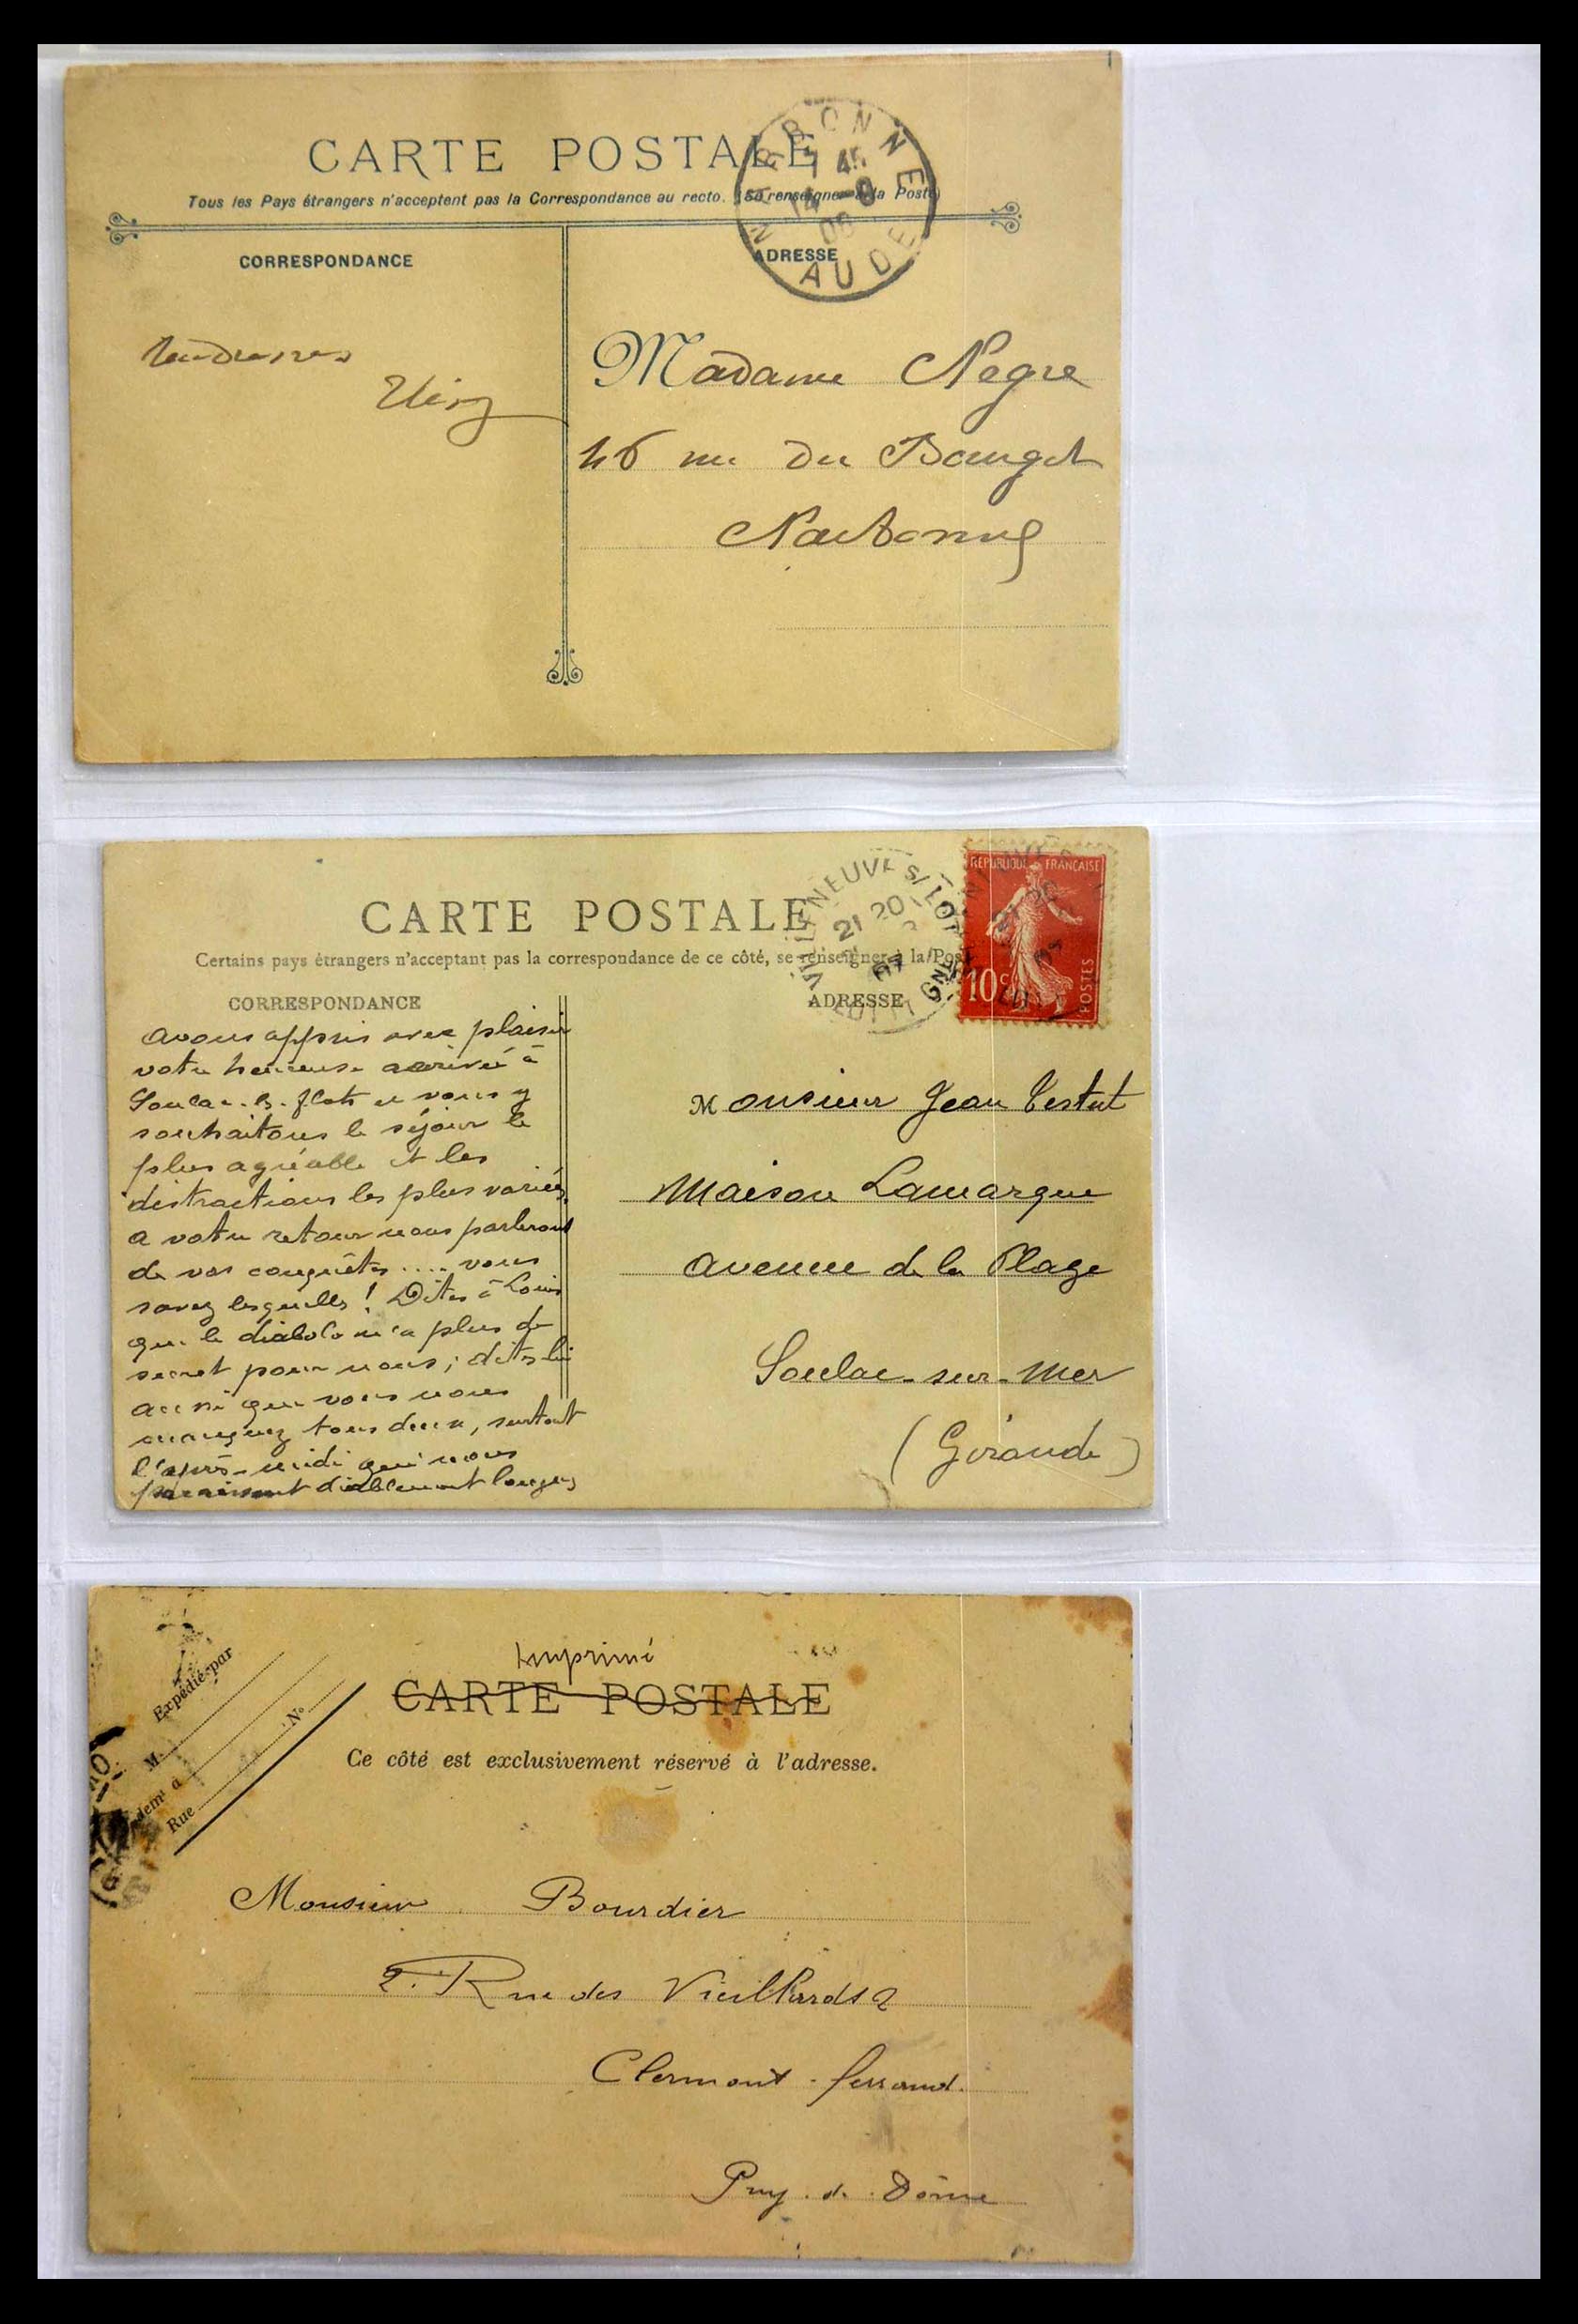 CARTE POSTALE
Tous les Pays étrangers n'acceptent pas la Correspondance au recto. (Se renseigner à la Poste)
NARBONNE
AUDE
CORRESPONDANCE
ADRESSE
Tendresses
Madame Negre
46 rue du Bourget
Narbonne
CARTE POSTALE
Certains pays étrangers n'acceptent pas la correspondance de ce côté, se renseigner à la Poste
VILLENEUVE S/LOT
LOT ET GNE
REPUBLIQUE FRANÇAISE
10c
POSTES
CORRESPONDANCE
ADRESSE
avons appris avec plaisir
votre heureuse arrivée à
Soulac-s-flots et vous y
souhaitons le séjour le
plus agréable et les
distractions les plus variées.
a votre retour nous parlerons
de vos conquêtes .... vous
savez lesquelles ! Dites à Louis
que le diabolo n'a plus de
secret pour nous ; dites lui
aussi que vous nous
manquez tous deux, surtout
l'après-midi qui nous
paraissent diablement longues
Monsieur Jean Testut
Maison Lamarque
avenue de la Plage
Soulac-sur-Mer
(Gironde)
Expédié par
M.
N°
Rue
Imprimé
CARTE POSTALE
Ce côté est exclusivement réservé à l'adresse.
Monsieur Bourdier
2. Rue des Vieillards 2
Clermont-ferrand.
Puy-de-Dôme